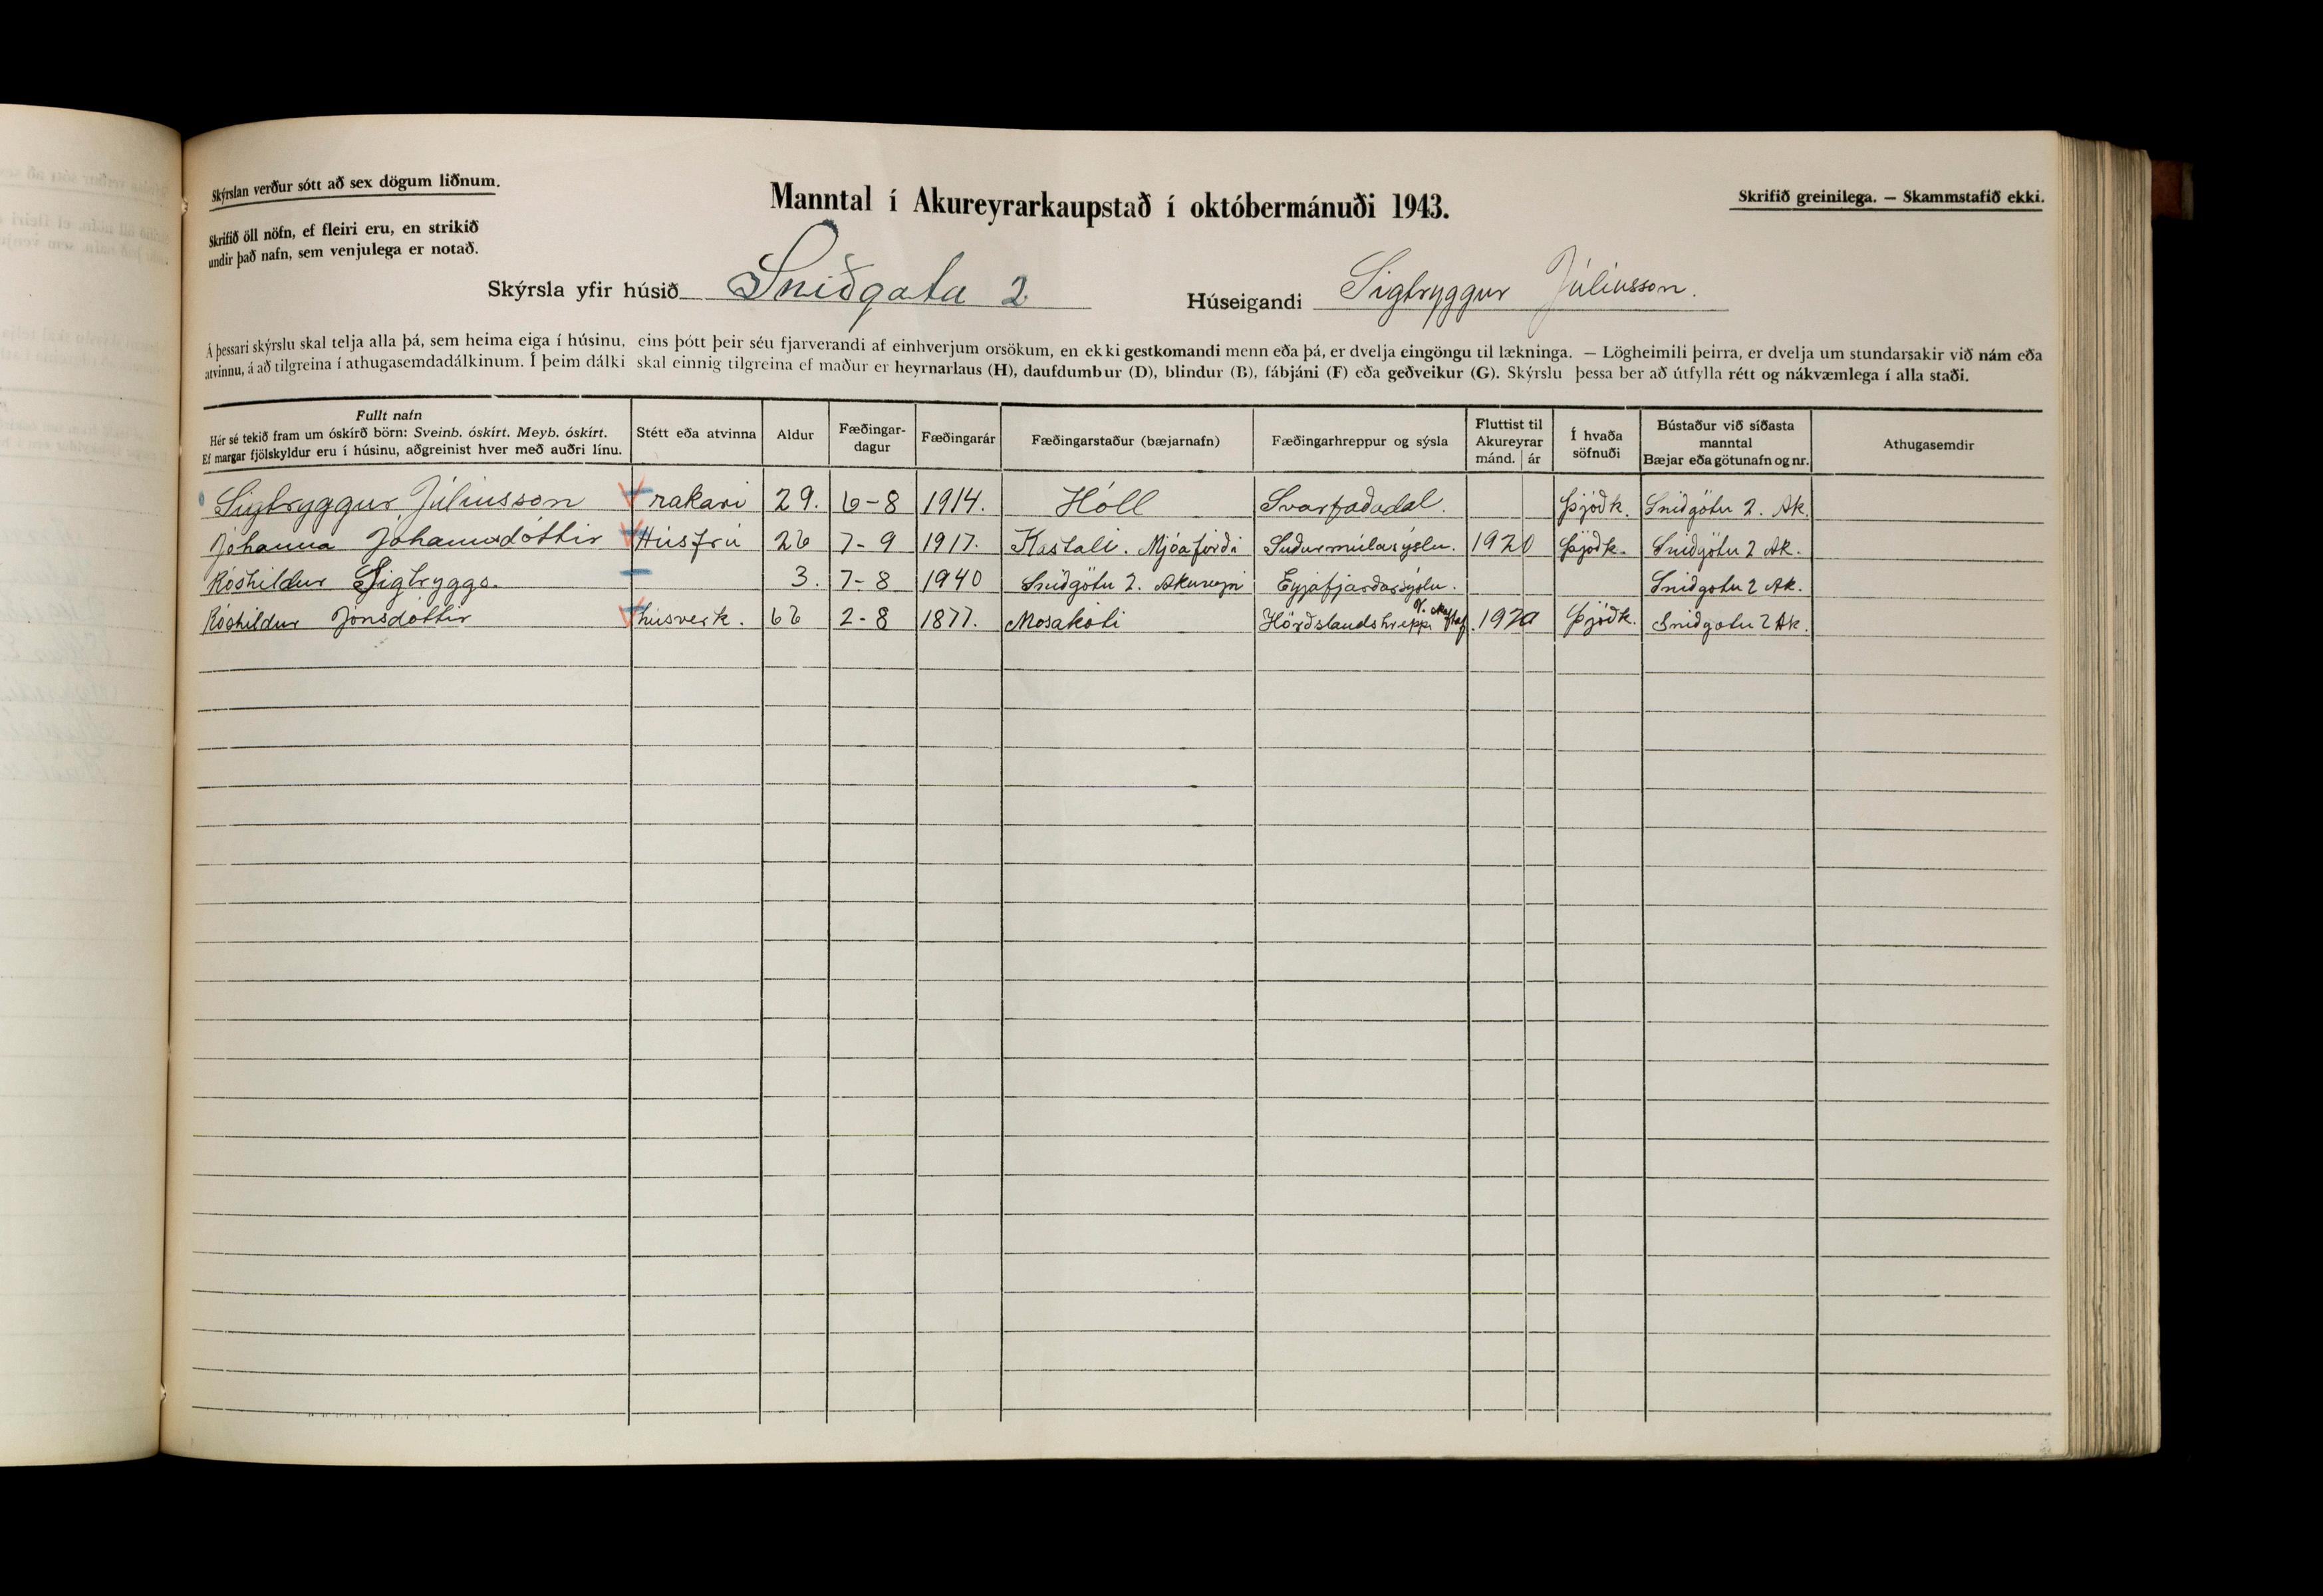 Skýrslan verður sótt að sex dögum liðnum.
Manntal í Akureyrarkaupstað í októbermánuði 1943.
Skrifið greinilega. — Skammstafið ekki.
Skrifið öll nöfn, ef fleiri eru, en strikið
undir það nafn, sem venjulega er notað.
Skýrsla yfir húsið Sniðgata 2 Húseigandi Sigtryggur Júlíusson.
Á þessari skýrslu skal telja alla þá, sem heima eiga í húsinu, eins þótt þeir séu fjarverandi af einhverjum orsökum, en ekki gestkomandi menn eða þá, er dvelja eingöngu til lækninga. — Lögheimili þeirra, er dvelja um stundarsakir við nám eða
atvinnu, á að tilgreina í athugasemdadálkinum. Í þeim dálki skal einnig tilgreina ef maður er heyrnarlaus (H), daufdumbur (D), blindur (B), fábjáni (F) eða geðveikur (G). Skýrslu þessa ber að útfylla rétt og nákvæmlega í alla staði.
Fullt nafn
Hér sé tekið fram um óskírð börn: Sveinb. óskírt. Meyb. óskírt.
Ef margar fjölskyldur eru í húsinu, aðgreinist hver með auðri línu.
Stétt eða atvinna
Aldur
Fæðingar-
dagur
Fæðingarár
Fæðingarstaður (bæjarnafn)
Fæðingarhreppur og sýsla
Fluttist til
Akureyrar
mánd. ár
Í hvaða
söfnuði
Bústaður við síðasta
manntal
Bæjar eða götunafn og nr.
Athugasemdir
Sigtryggur Júlíusson rakari 29. 6-8 1914. Hóll Svarfaðadal. Þjóðk. Sniðgötu 2. Ak.
Jóhanna Jóhannsdóttir Húsfrú 26 7-9 1917. Kastali. Mjóafirði Suðurmúlasýslu. 1920 Þjóðk. Sniðgötu 2 Ak.
Róshildur Sigtryggs. 3. 7-8 1940 Sniðgötu 2. Akureyri Eyjafjarðarsýslu. Sniðgötu 2 Ak.
Róshildur Jónsdóttir húsverk. 66 2-8 1877. Mosakoti Hörðslandshreppi 1920 Þjóðk. Sniðgötu 2 Ak.